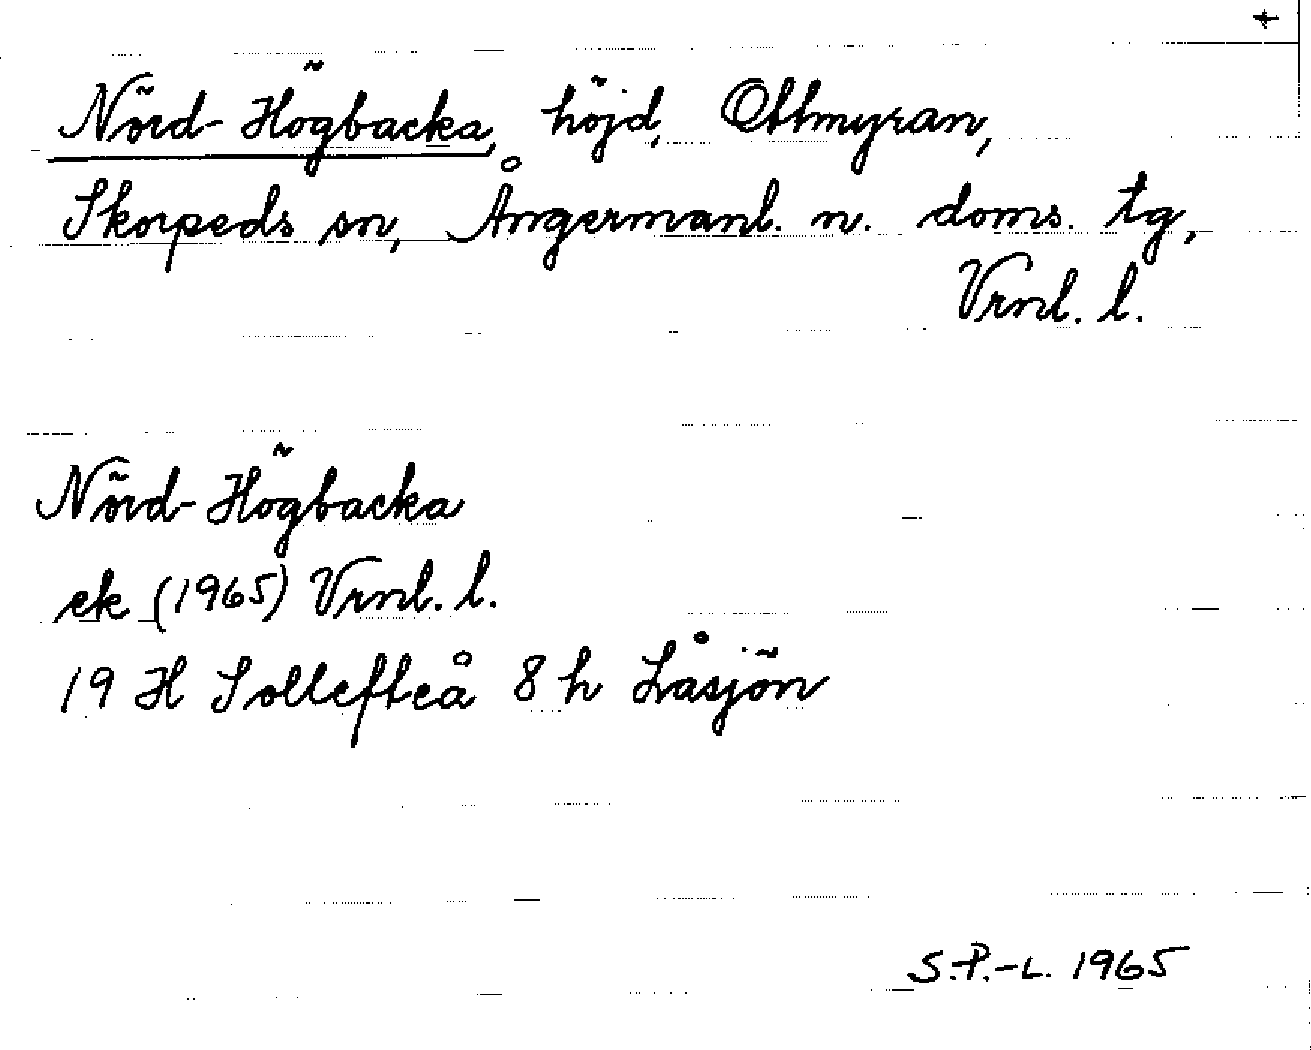 +
Nörd-Högbacka, höjd, Ottmyran,
Skorpeds sn, Ångermanl. n. doms. tg,
Vrnl. l.
Nörd-Högbacka
ek (1965) Vrnl. l.
19 H Sollefteå 8 h Låsjön
S.P.-L. 1965